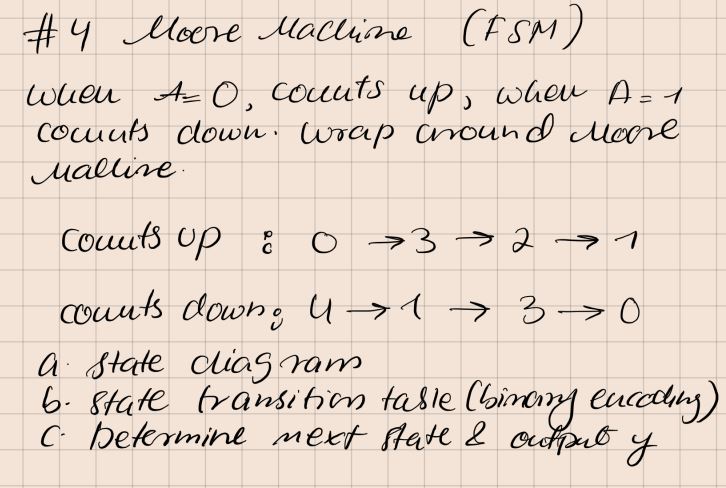 #4 Moore Machine (FSM)
when A=0, counts up, when A=1
counts down. Wrap around Moore
Machine.
counts up : 0 → 3 → 2 → 1
counts down: 4 → 1 → 3 → 0
a. state diagram
b. state transition table (binary encoding)
c. Determine next state & output y